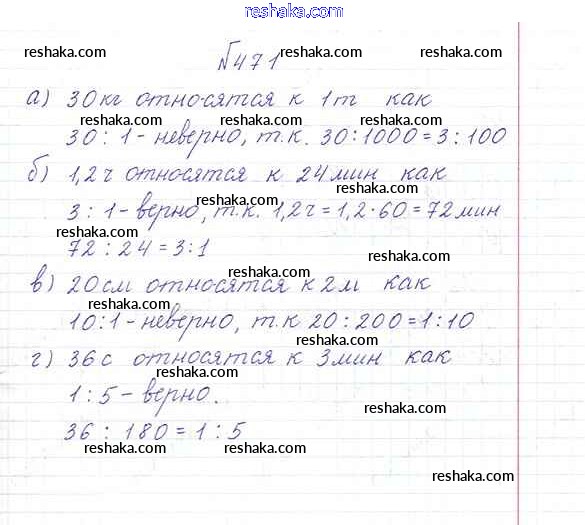 reshaka.com
reshaka.com reshaka.com reshaka.com
№471
а) 30кг относятся к 1т как
reshaka.com reshaka.com
30 : 1 - неверно, т.к. 30:1000 = 3 : 100
reshaka.com
б) 1,2ч относятся к 24мин как
reshaka.com
reshaka.com
3 : 1 - верно, т.к. 1,2ч = 1,2·60 = 72мин
reshaka.com reshaka.com
72 : 24 = 3:1
reshaka.com
reshaka.com
в) 20см относятся к 2м как
reshaka.com
10:1 - неверно, т.к 20 : 200 = 1 : 10
reshaka.com
г) 36с относятся к 3мин как
reshaka.com
1 : 5 - верно.
reshaka.com
36 : 180 = 1 : 5
reshaka.com reshaka.com
reshaka.com